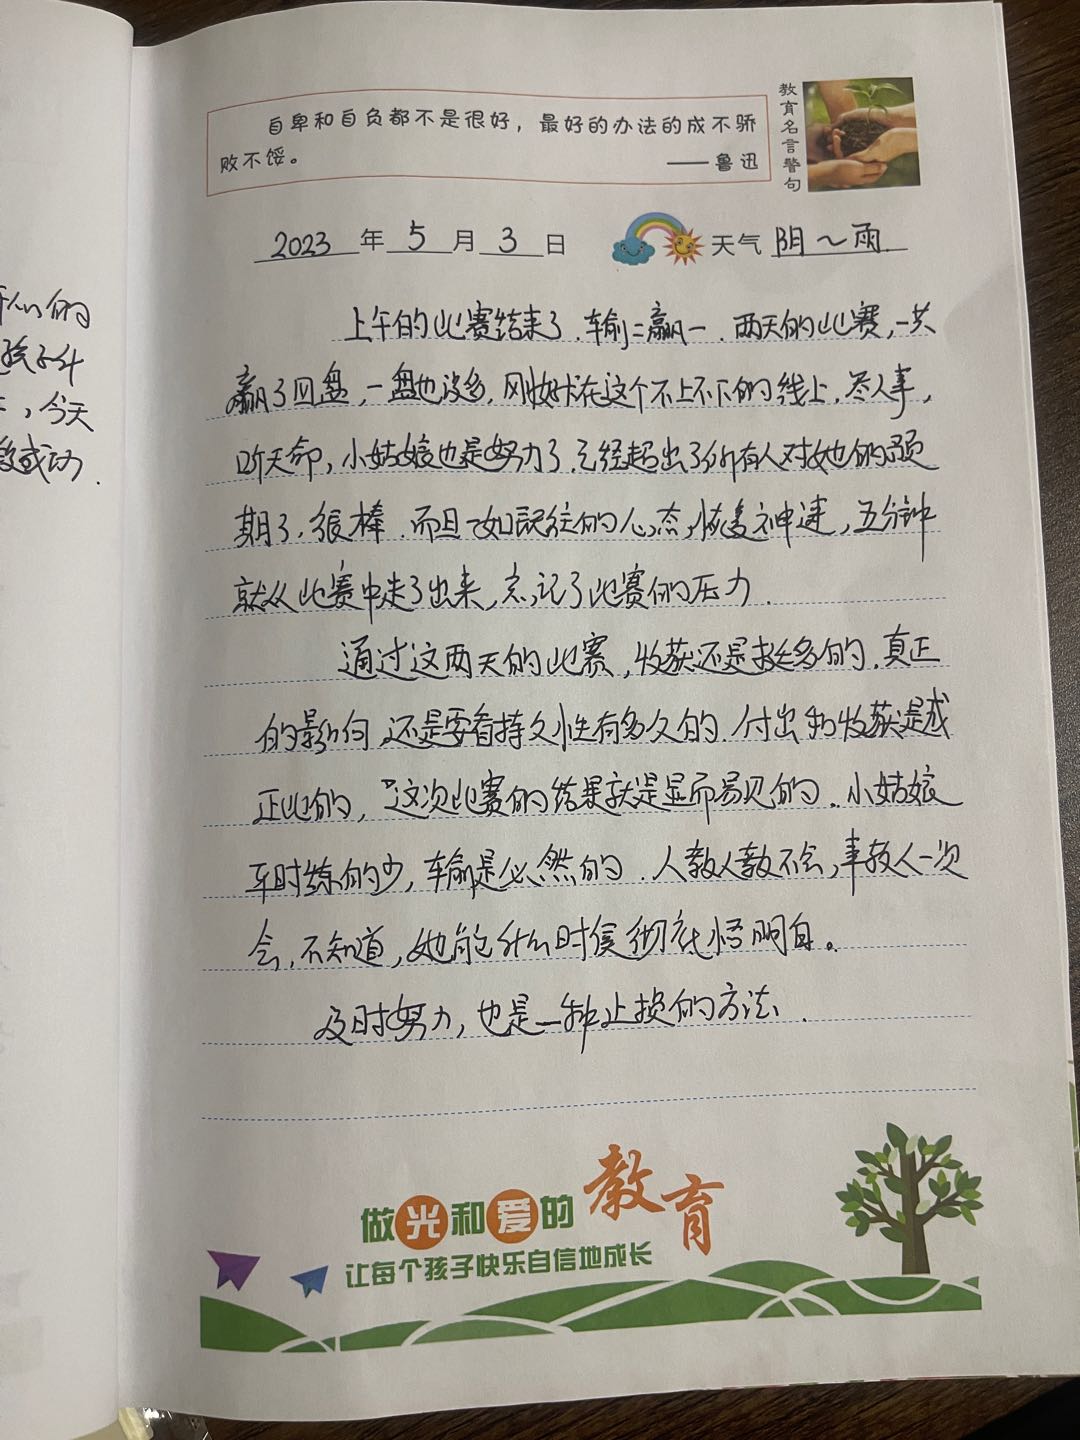 开心的
孩子斗
,今天
成功.
教育名言警句
自卑和自负都不是很好，最好的办法的成不骄
败不馁。
——鲁迅
2023年5月3日
天气 阴～雨
上午的比赛结束了.输二赢一.两天的比赛,一共
赢了四盘,一盘也没多,刚好状在这个不上不下的线上.尽人事,
听天命,小姑娘也是努力了.已经超出了所有人对她的预
期了,很棒.而且一如既往的心态,恢复神速,五分钟
就从比赛中走了出来,忘记了比赛的压力.
通过这两天的比赛,收获还是挺多的.真正
的影响,还是要看持久性有多久的.付出和收获是成
正比的,这次比赛的结果就是显而易见的.小姑娘
平时练的少,输是必然的.人教人教不会,事教人一次
会,不知道,她能什么时候彻底悟明白。
及时努力,也是一种止损的方法.
做光和爱的教育
让每个孩子快乐自信地成长